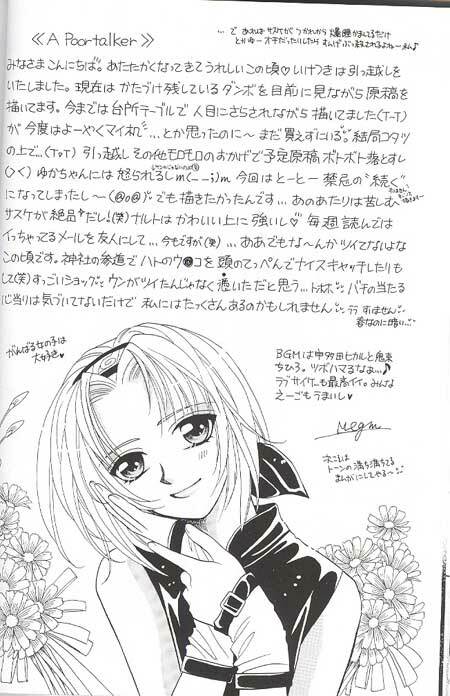 ≪A Poor talker≫
…で あれは サスケが つかれから 爆睡かましてるだけ
とかゆー オチだったりしたら すんげぶっ殺されるよねー 私♪
みなさまこんにちは。あたたかくなってきてうれしいこの頃♡いけつきは引っ越しを
いたしました。現在は かたづけ残しているダンボを目前に見ながら原稿を
描いてます。今までは台所テーブルで人目にさらされながら描いてました(T-T)
が今度はよーやくマイ机…とか思ったのに〜まだ買えずにいる。結局コタツ
の上で…(ToT) 引っ越しその他モロモロのおかげで予定原稿ボトボト落とすし
(>く) ゆかちゃんには 怒られるしm(_ _;)m 今回はとーとー禁忌の"続く"
になってしまったし〜(@o@) でも描きたかったんです…あのあたりは苦しむ
サスケが絶品だし!(笑)ナルトはかわいい上に強いし 毎週読んでは
いっちゃってるメールを友人にして…今もですが(笑)…ああでもな〜んかツイてないなな
この頃です。神社の参道でハトのウ●コを頭のてっぺんでナイスキャッチしたりも
して(笑)すっごいショック。ウンがツイたんじゃなく憑いただと思う…トホホ バチの当たる
心当りは気づいてないだけで 私にはたくさんあるのかもしれません
すいません
春なのに暗い…
がんばる女の子は
大好き♥
BGMは宇多田ヒカルと鬼束
ちひろ。ツボハマるなぁ…♪
ラブサイケーも最高イイ。みんな
えーごもうまいし♥
Megm
次こそは
トーンの満ち満ちてる
まんがにしてやる〜